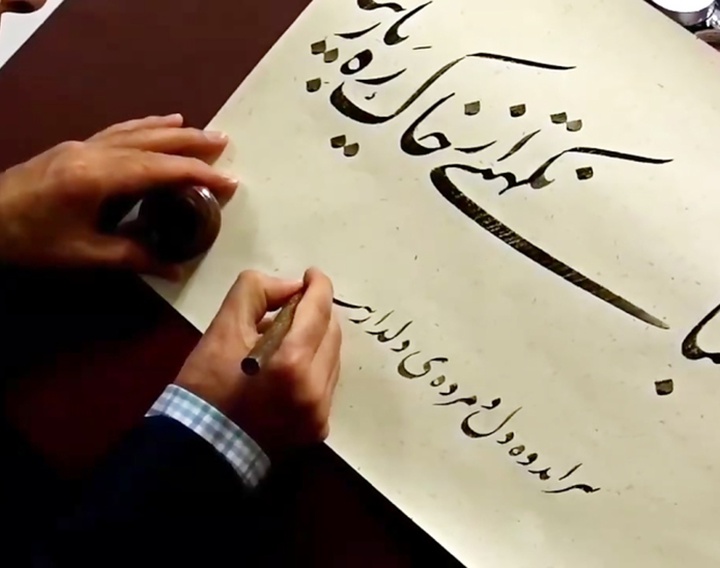 نکهتی از خاک ره یار
ببر اندوه دل و مژده‌ی دلدار